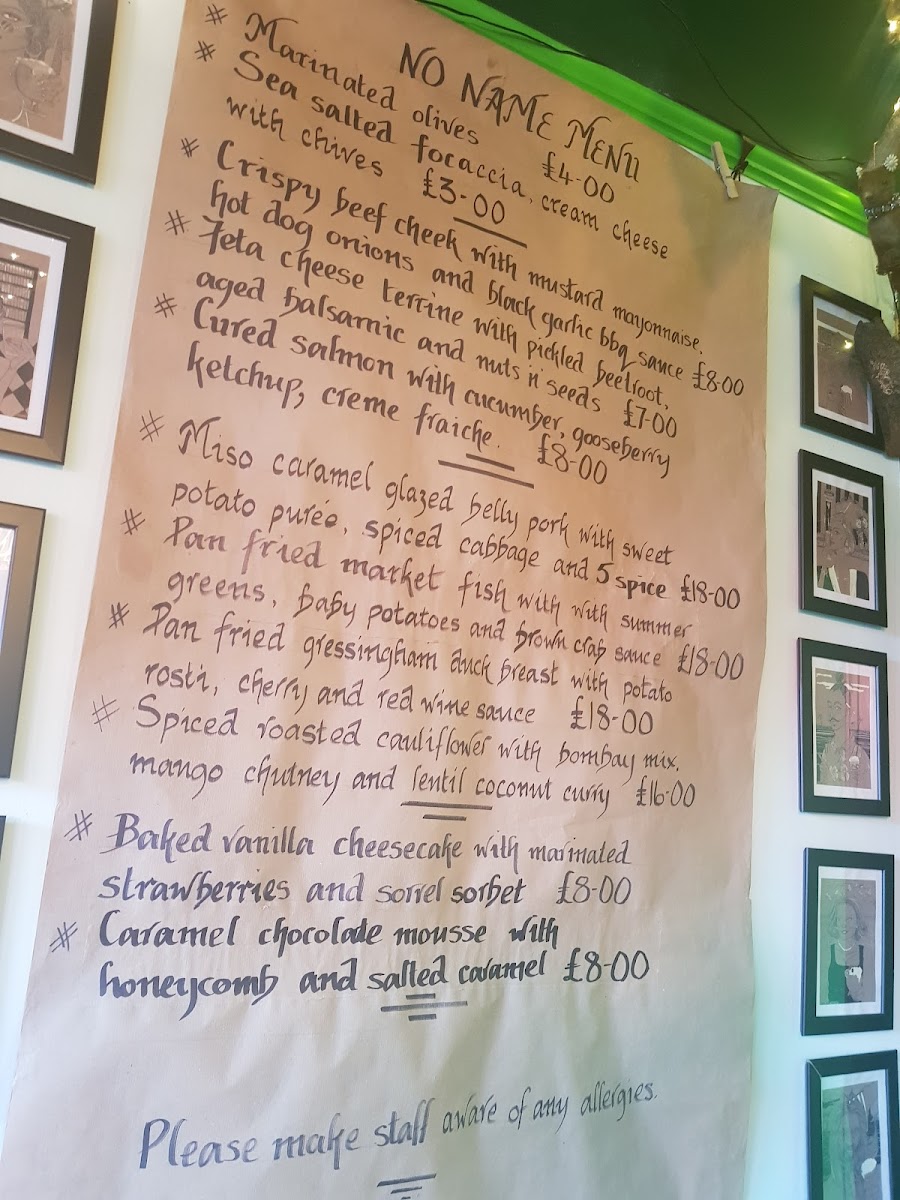 NO NAME MENU
# Marinated olives £4-00
# Sea salted focaccia, cream cheese
with chives £3-00
# Crispy beef cheek with mustard mayonnaise,
hot dog onions and black garlic bbq sauce £8-00
# Feta cheese terrine with pickled beetroot,
aged balsamic and nuts n' seeds £7-00
# Cured salmon with cucumber, gooseberry
ketchup, creme fraiche. £8-00
# Miso caramel glazed belly pork with sweet
potato purée, spiced cabbage and 5 spice £18-00
# Pan fried market fish with with summer
greens, baby potatoes and brown crab sauce £18-00
# Pan fried gressingham duck breast with potato
rosti, cherry and red wine sauce £18-00
# Spiced roasted cauliflower with bombay mix,
mango chutney and lentil coconut curry £16-00
# Baked vanilla cheesecake with marinated
strawberries and sorrel sorbet £8-00
# Caramel chocolate mousse with
honeycomb and salted caramel £8-00
Please make staff aware of any allergies.